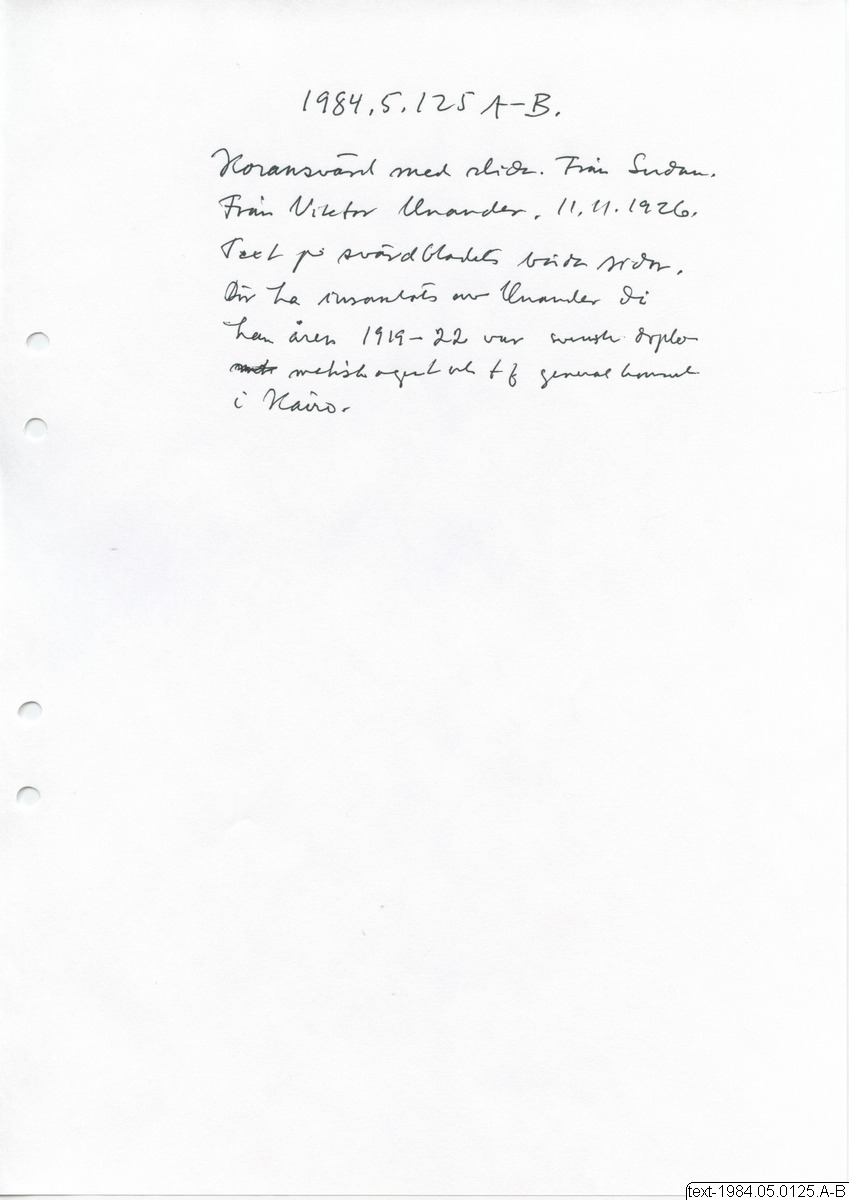 1984.5.125 A-B.
Koransvärd med slida. Från Sudan.
Från Viktor Unander, 11.11.1926.
Text på svärdbladets båda sidor.
Bör ha insamlats av Unander då
han åren 1919-22 var svensk diplo
matisk agent och t f generalkonsul
i Kairo.
text-1984.05.0125.A-B